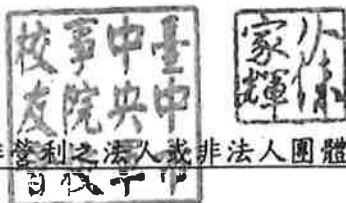 臺中市
中央軍
事院校
校友會
家輝
非營利之法人或非法人團體